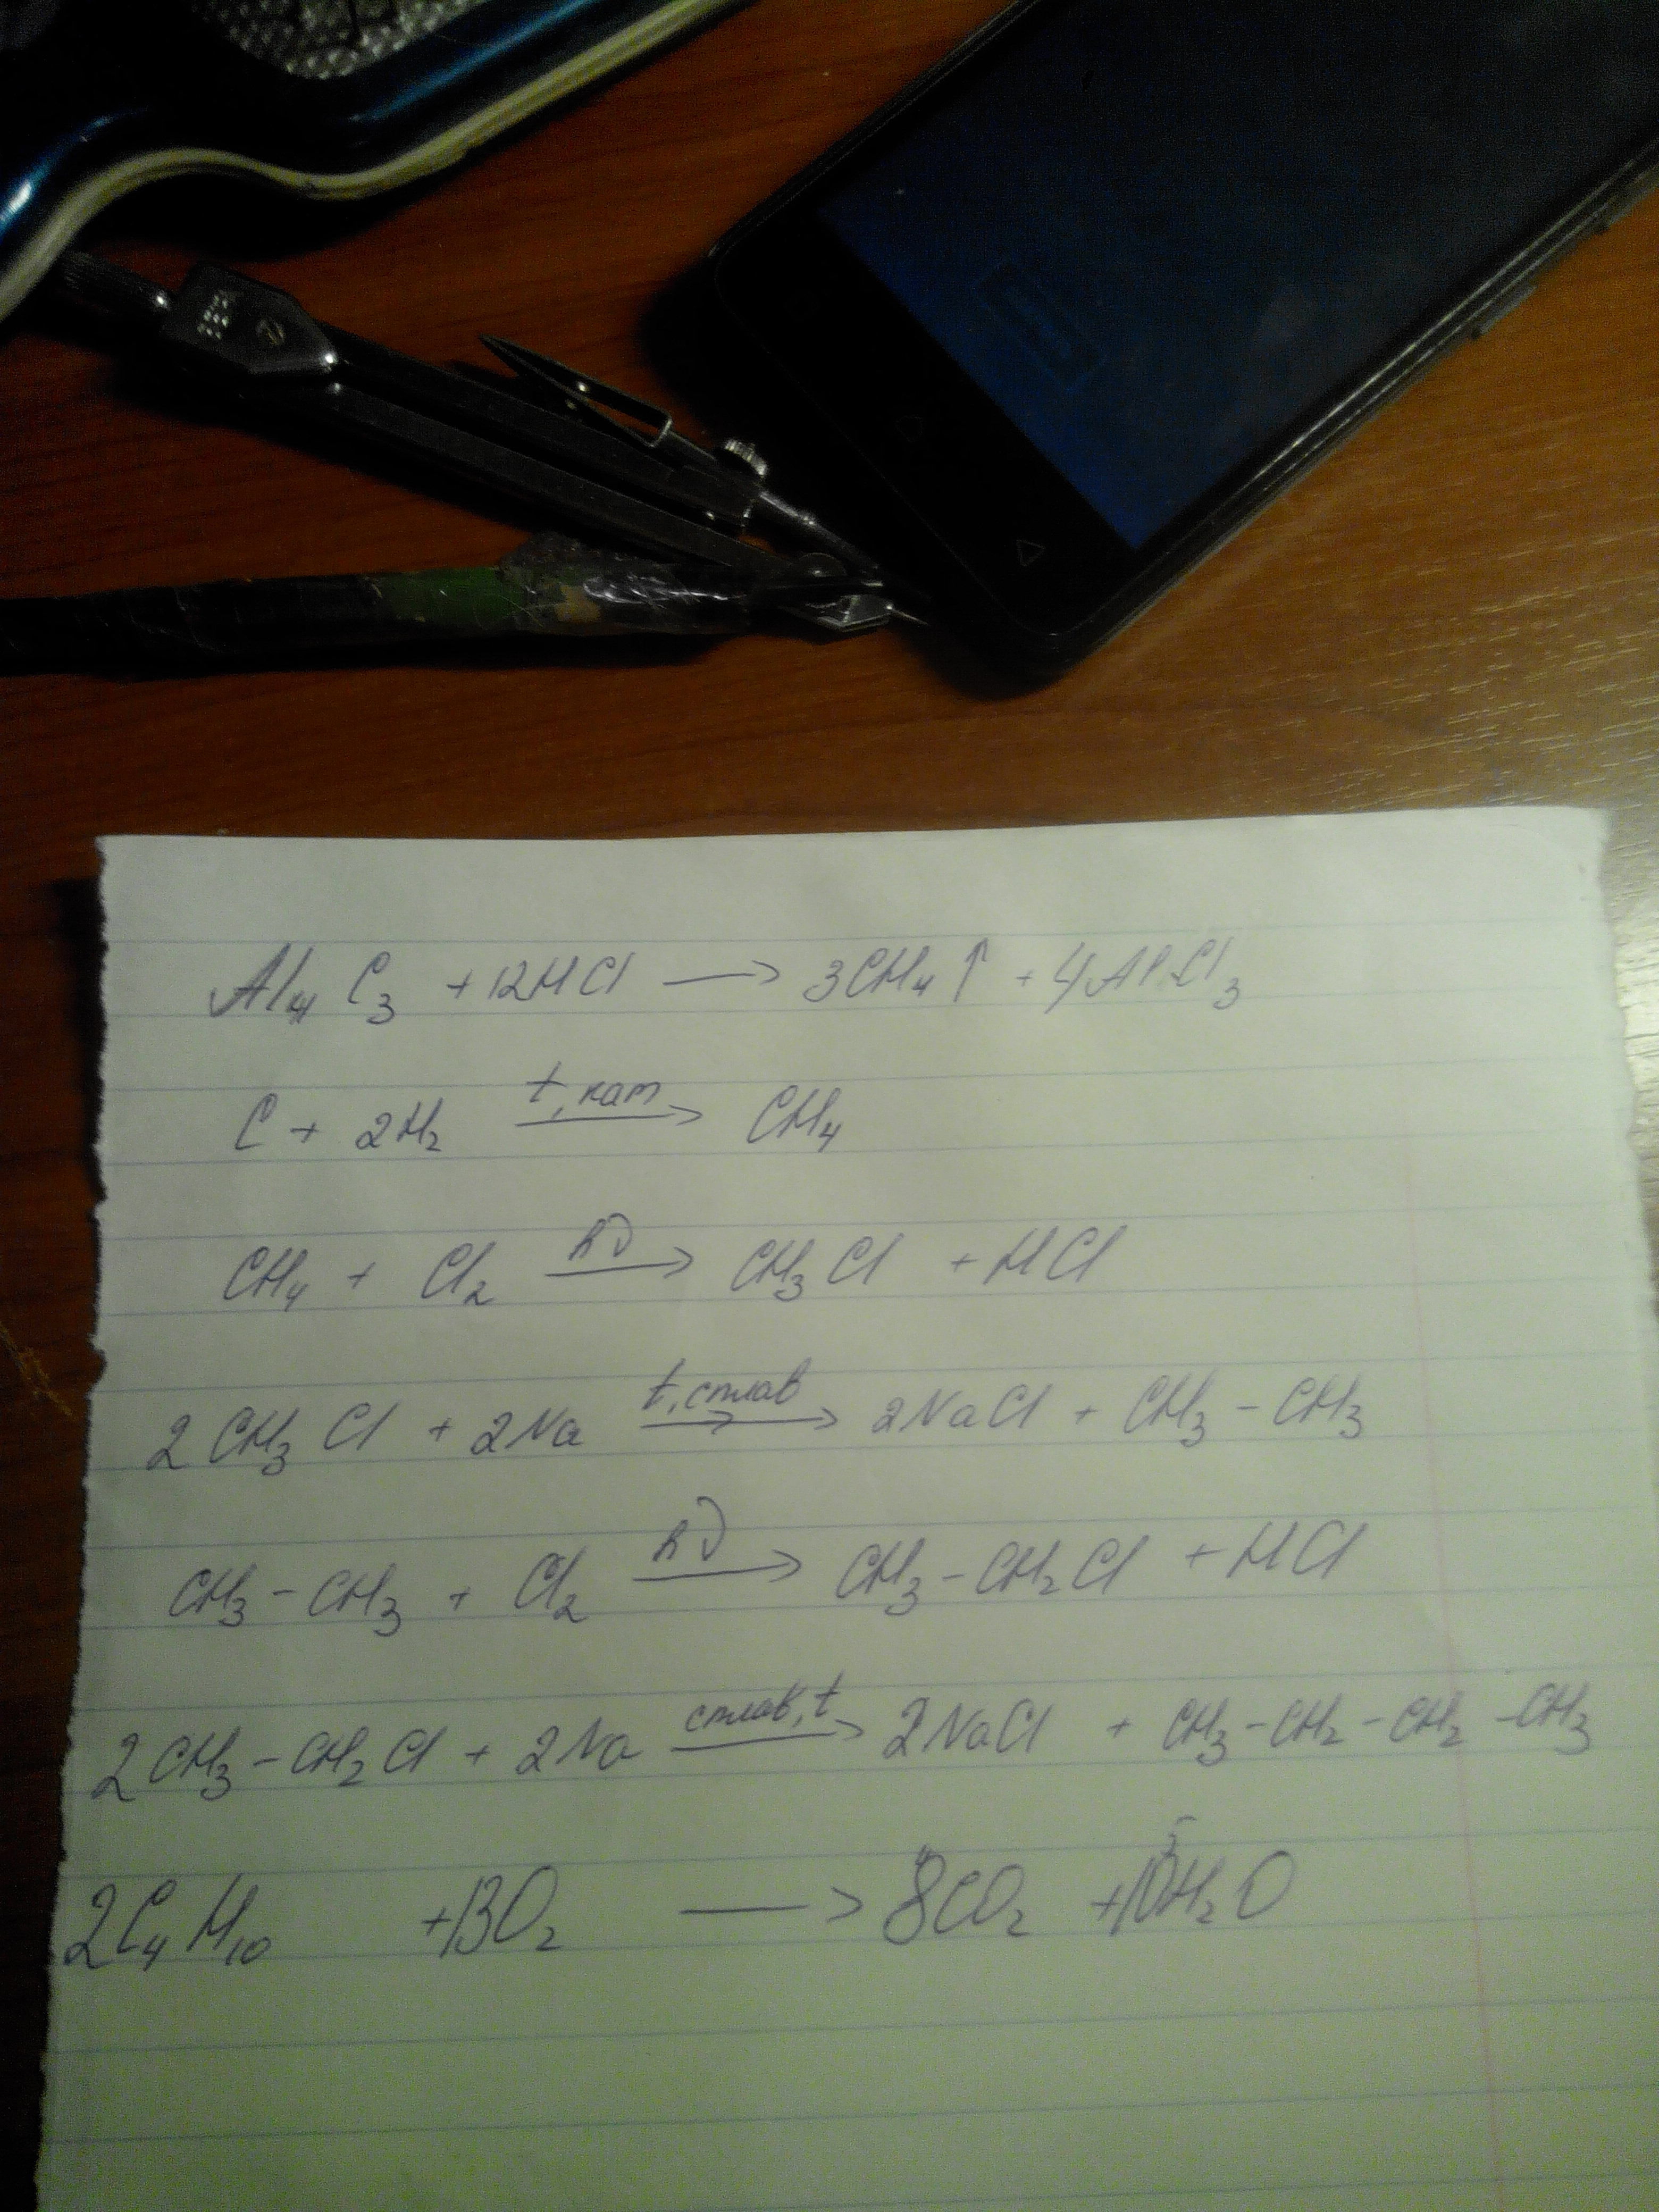 Al₄C₃ + 12HCl → 3CH₄↑ + 4AlCl₃
C + 2H₂ t, кат → CH₄
CH₄ + Cl₂ hν → CH₃Cl + HCl
2CH₃Cl + 2Na t, сплав → 2NaCl + CH₃-CH₃
CH₃-CH₃ + Cl₂ hν → CH₃-CH₂Cl + HCl
2CH₃-CH₂Cl + 2Na сплав, t → 2NaCl + CH₃-CH₂-CH₂-CH₃
2C₄H₁₀ + 13O₂ → 8CO₂ + 10H₂O